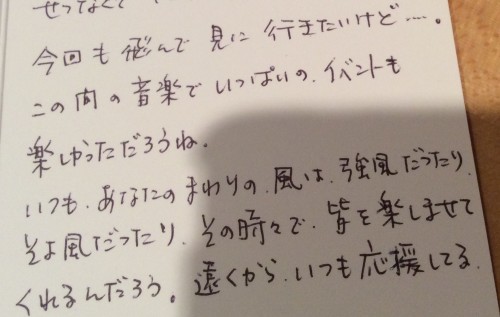 せつなくて
今回も飛んで見に行きたいけど…。
この間の音楽でいっぱいの、イベントも
楽しかっただろうね。
いつも、あなたのまわりの、風は、強風だったり、
そよ風だったり、その時々で、皆を楽しませて
くれるんだろう。遠くから、いつも応援してる。